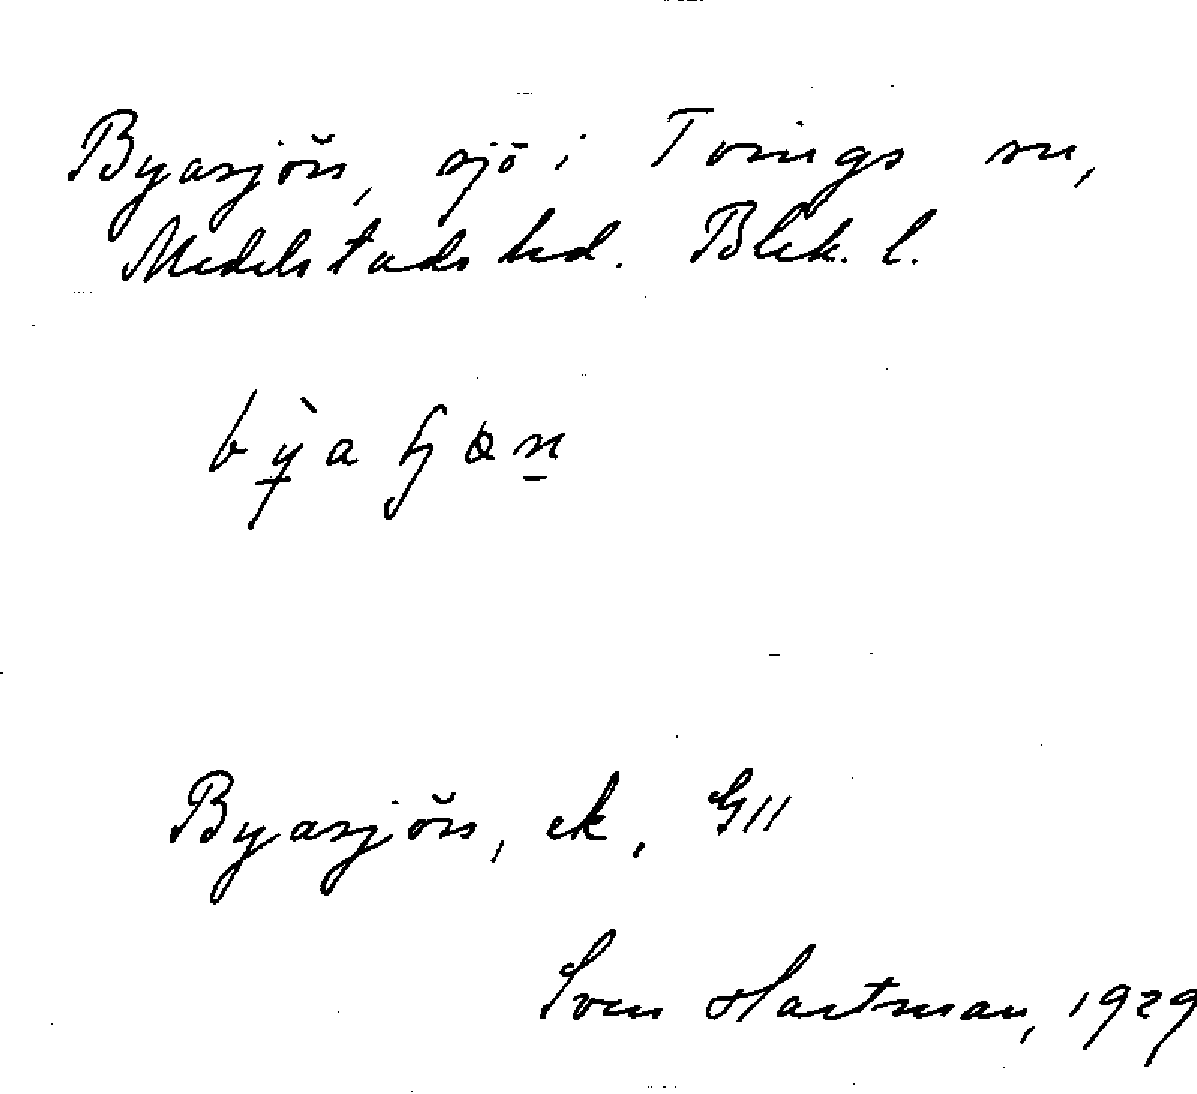 Byasjön, sjö i Tvings sn,
Medelstads hd. Blek. l.
Byasjön, ek, G11
Sven Hartman, 1929